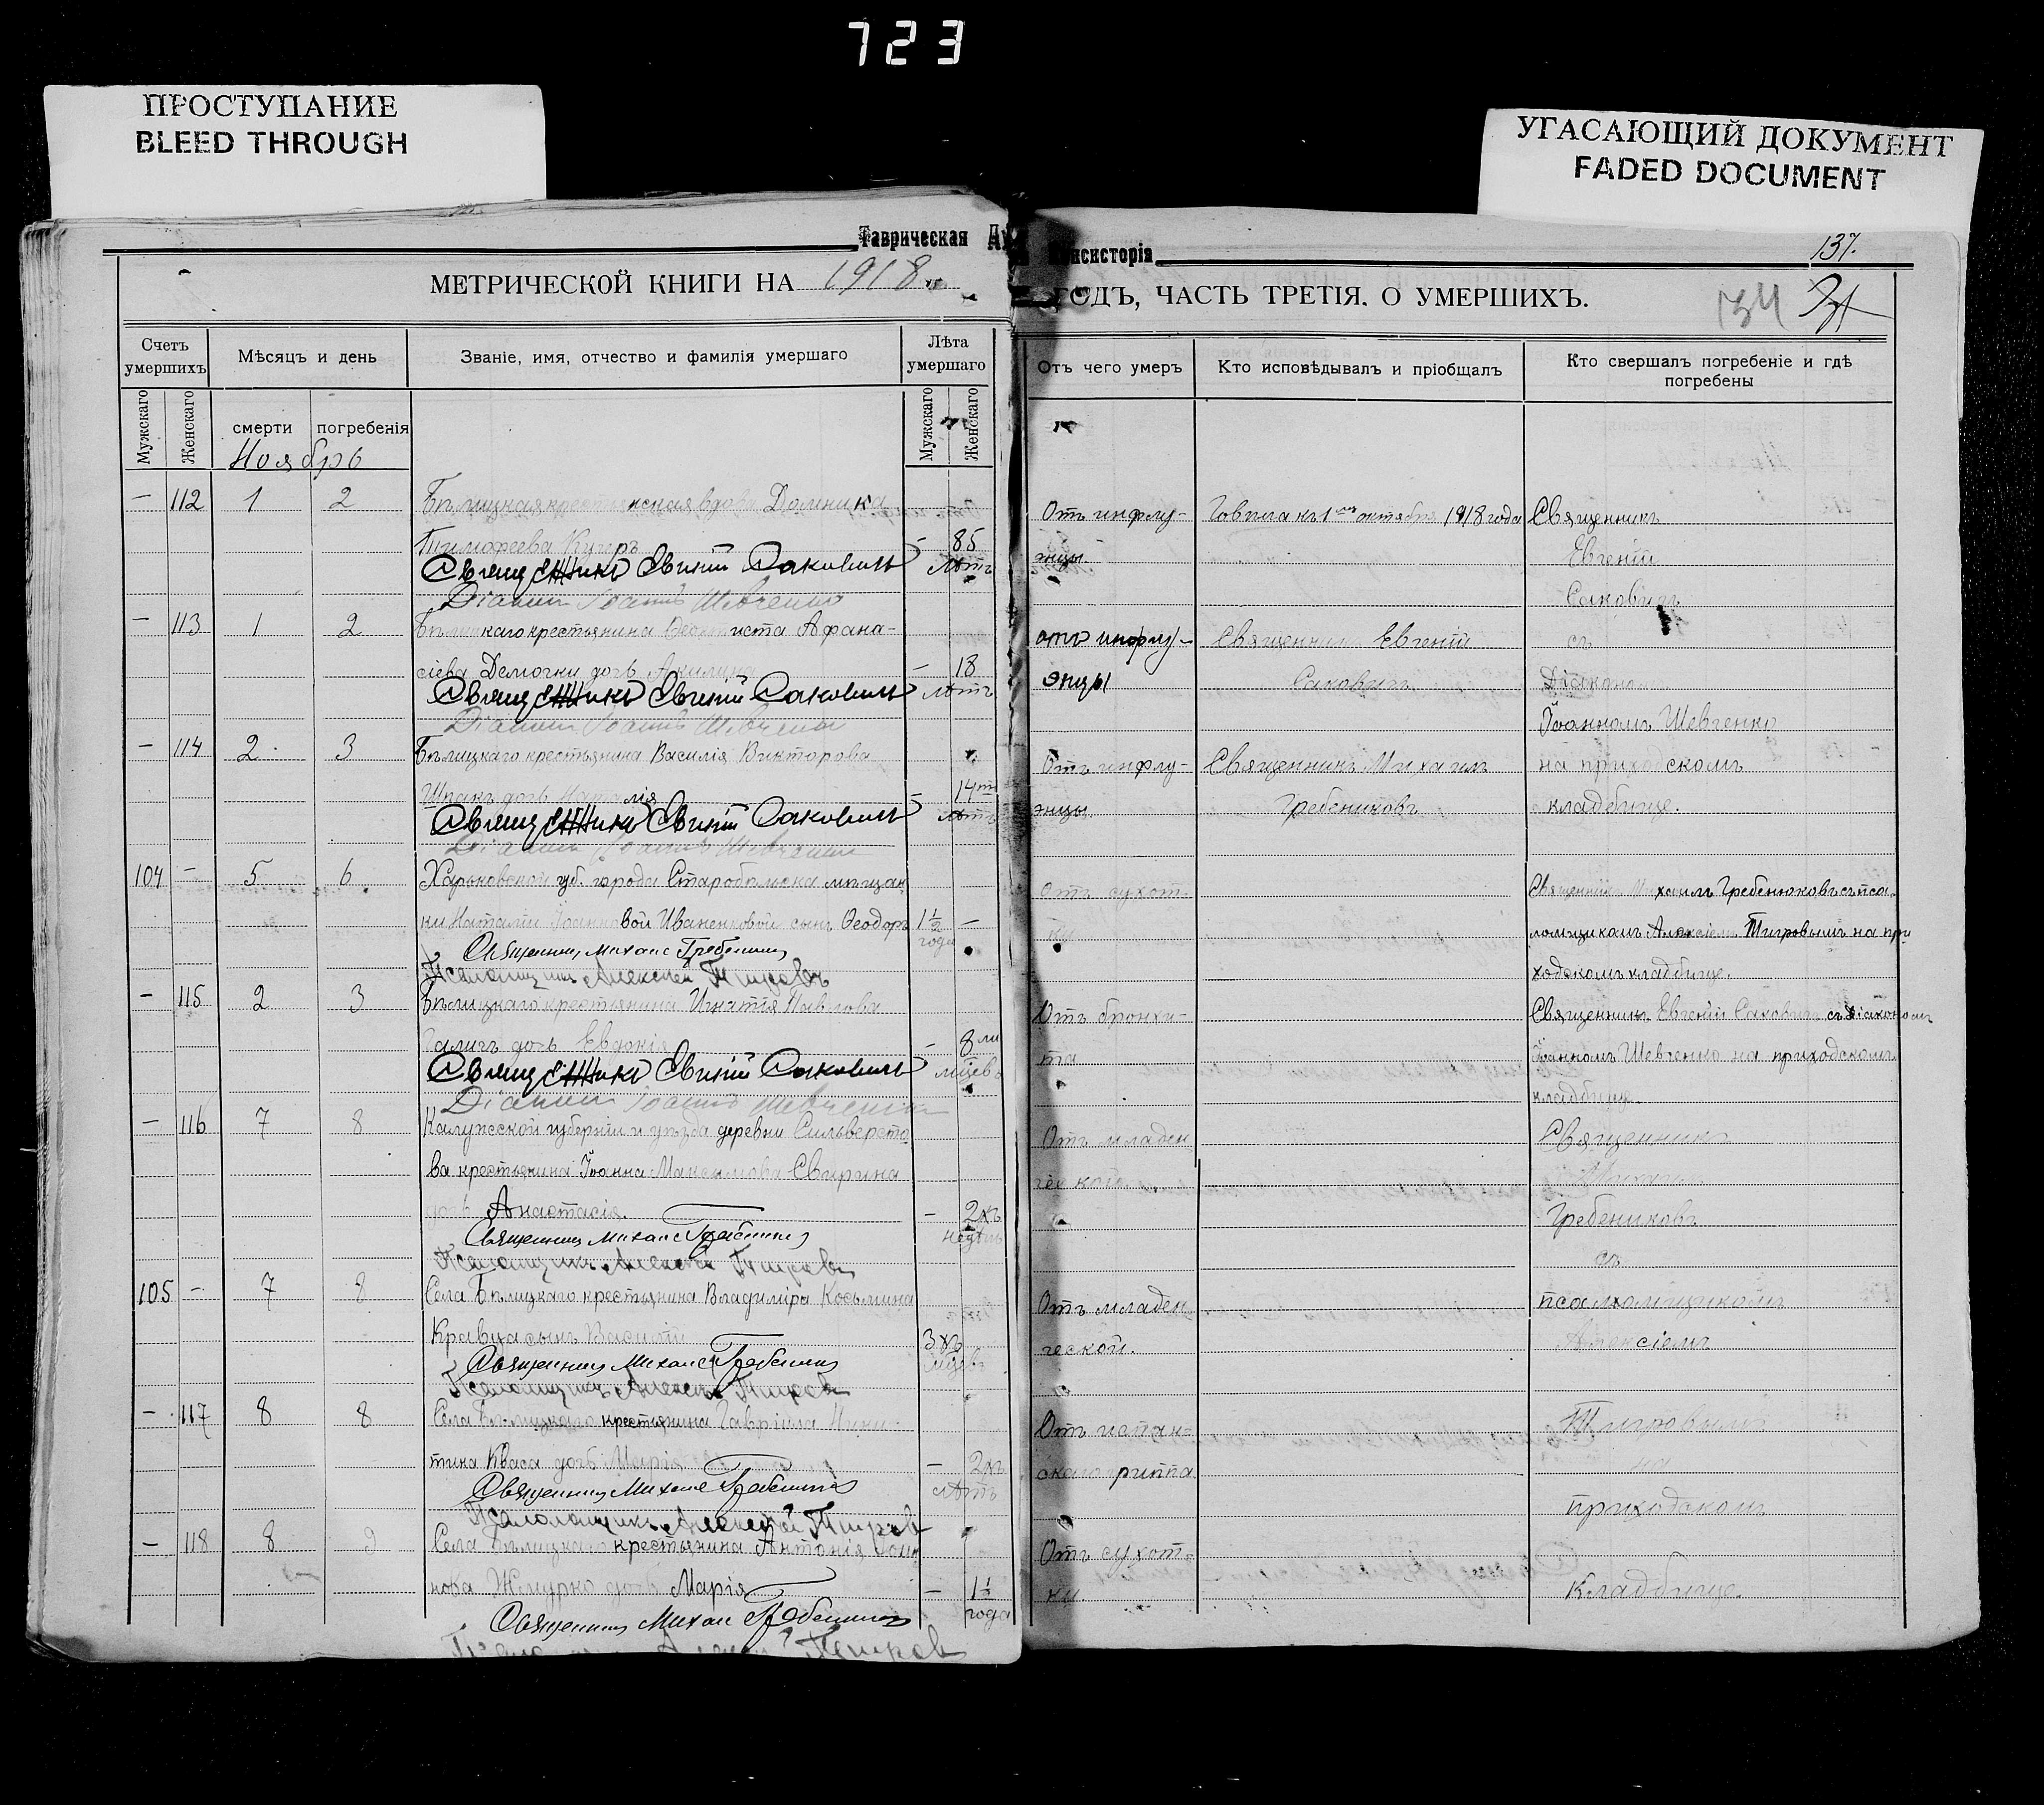 723
ПРОСТУПАНИЕ
BLEED THROUGH
УГАСАЮЩИЙ ДОКУМЕНТ
FADED DOCUMENT
Таврическая Ду
нсисторія
137.
134
МЕТРИЧЕСКОЙ КНИГИ НА 1918
ГОДЪ, ЧАСТЬ ТРЕТІЯ. О УМЕРШИХЪ.
Счетъ умершихъ
Мужскаго
Женскаго
Мѣсяцъ и день
смерти
погребенія
Званіе, имя, отчество и фамилія умершаго
Лѣта умершаго
Мужскаго
Женскаго
Отъ чего умеръ
Кто исповѣдывалъ и пріобщалъ
Кто свершалъ погребеніе и гдѣ
погребены
Ноябрь
— 112 1 2 Бѣлицкая крестьянская вдова Домника
Тимофеева Кучеръ — 85
Священникъ Евгеній Саковичъ лѣтъ
Діаконъ Іоаннъ Шевченко
Отъ инфлу-
энцы
Говѣла къ 1 октября 1918 года
Священникъ
Евгеній
Саковичъ
— 113 1 2 Бѣлицкаго крестьянина Феоктиста Афана-
сіева Демочки дочь Акилина — 18
Священникъ Евгеній Саковичъ лѣтъ
Діаконъ Іоаннъ Шевченко
отъ инфлу-
энцы
Священникъ Евгеній
Саковичъ
съ
Діакономъ
Іоанномъ Шевченко
— 114 2 3 Бѣлицкаго крестьянина Василія Викторова
Шпакъ дочь Наталія — 14
Священникъ Евгеній Саковичъ лѣтъ
Діаконъ Іоаннъ Шевченко
Отъ инфлу-
энцы
Священникъ Михаилъ
Гребениковъ
на приходскомъ
кладбище.
104 — 5 6 Харьковской губ. города Старобѣльска мѣщан
ки Наталіи Іоанновой Иваненковой сынъ Феодоръ 1 1/2 —
года
Священникъ Михаилъ Гребениковъ
Псаломщикъ Алексей Тигровъ
Отъ сухот-
ки
Священникъ Михаилъ Гребениковъ съ пса-
ломщикомъ Алексіемъ Тигровымъ на при
ходскомъ кладбище.
— 115 2 3 Бѣлицкаго крестьянина Игнатія Павлова
Галичъ дочь Евдокія — 8 ми
Священникъ Евгеній Саковичъ мцевъ
Діаконъ Іоаннъ Шевченко
Отъ бронхи-
та
Священникъ Евгеній Саковичъ съ діакономъ
Іоанномъ Шевченко на приходскомъ
кладбище.
— 116 7 8 Калужской губерніи и уѣзда деревни Сильверсто
ва крестьянина Іоанна Максимова Свирина
дочь Анастасія. — 2хъ
недѣль
Священникъ Михаилъ Гребениковъ
Псаломщикъ Алексей Тигровъ
Отъ младен
ческой
Священникъ
Михаилъ
Гребениковъ
съ
105 — 7 8 Села Бѣлицкаго крестьянина Владиміра Косьмина
Кравца сынъ Василій 3хъ
мцевъ
Священникъ Михаилъ Гребениковъ
Псаломщикъ Алексей Тигровъ
Отъ младен
ческой.
псаломщикомъ
Алексіемъ
— 117 8 8 Села Бѣлицкаго крестьянина Гавріила Ники-
тина Кваса дочь Марія — 2хъ
лѣтъ
Священникъ Михаилъ Гребениковъ
Псаломщикъ Алексей Тигровъ
Отъ испан-
скаго гриппа
Тигровымъ
на
приходскомъ
— 118 8 9 Села Бѣлицкаго крестьянина Антонія
нова Жмурко дочь Марія — 1 1/2
года
Священникъ Михаилъ Гребениковъ
Псаломщикъ Алексей Тигровъ
Отъ сухот-
ки.
Кладбище.